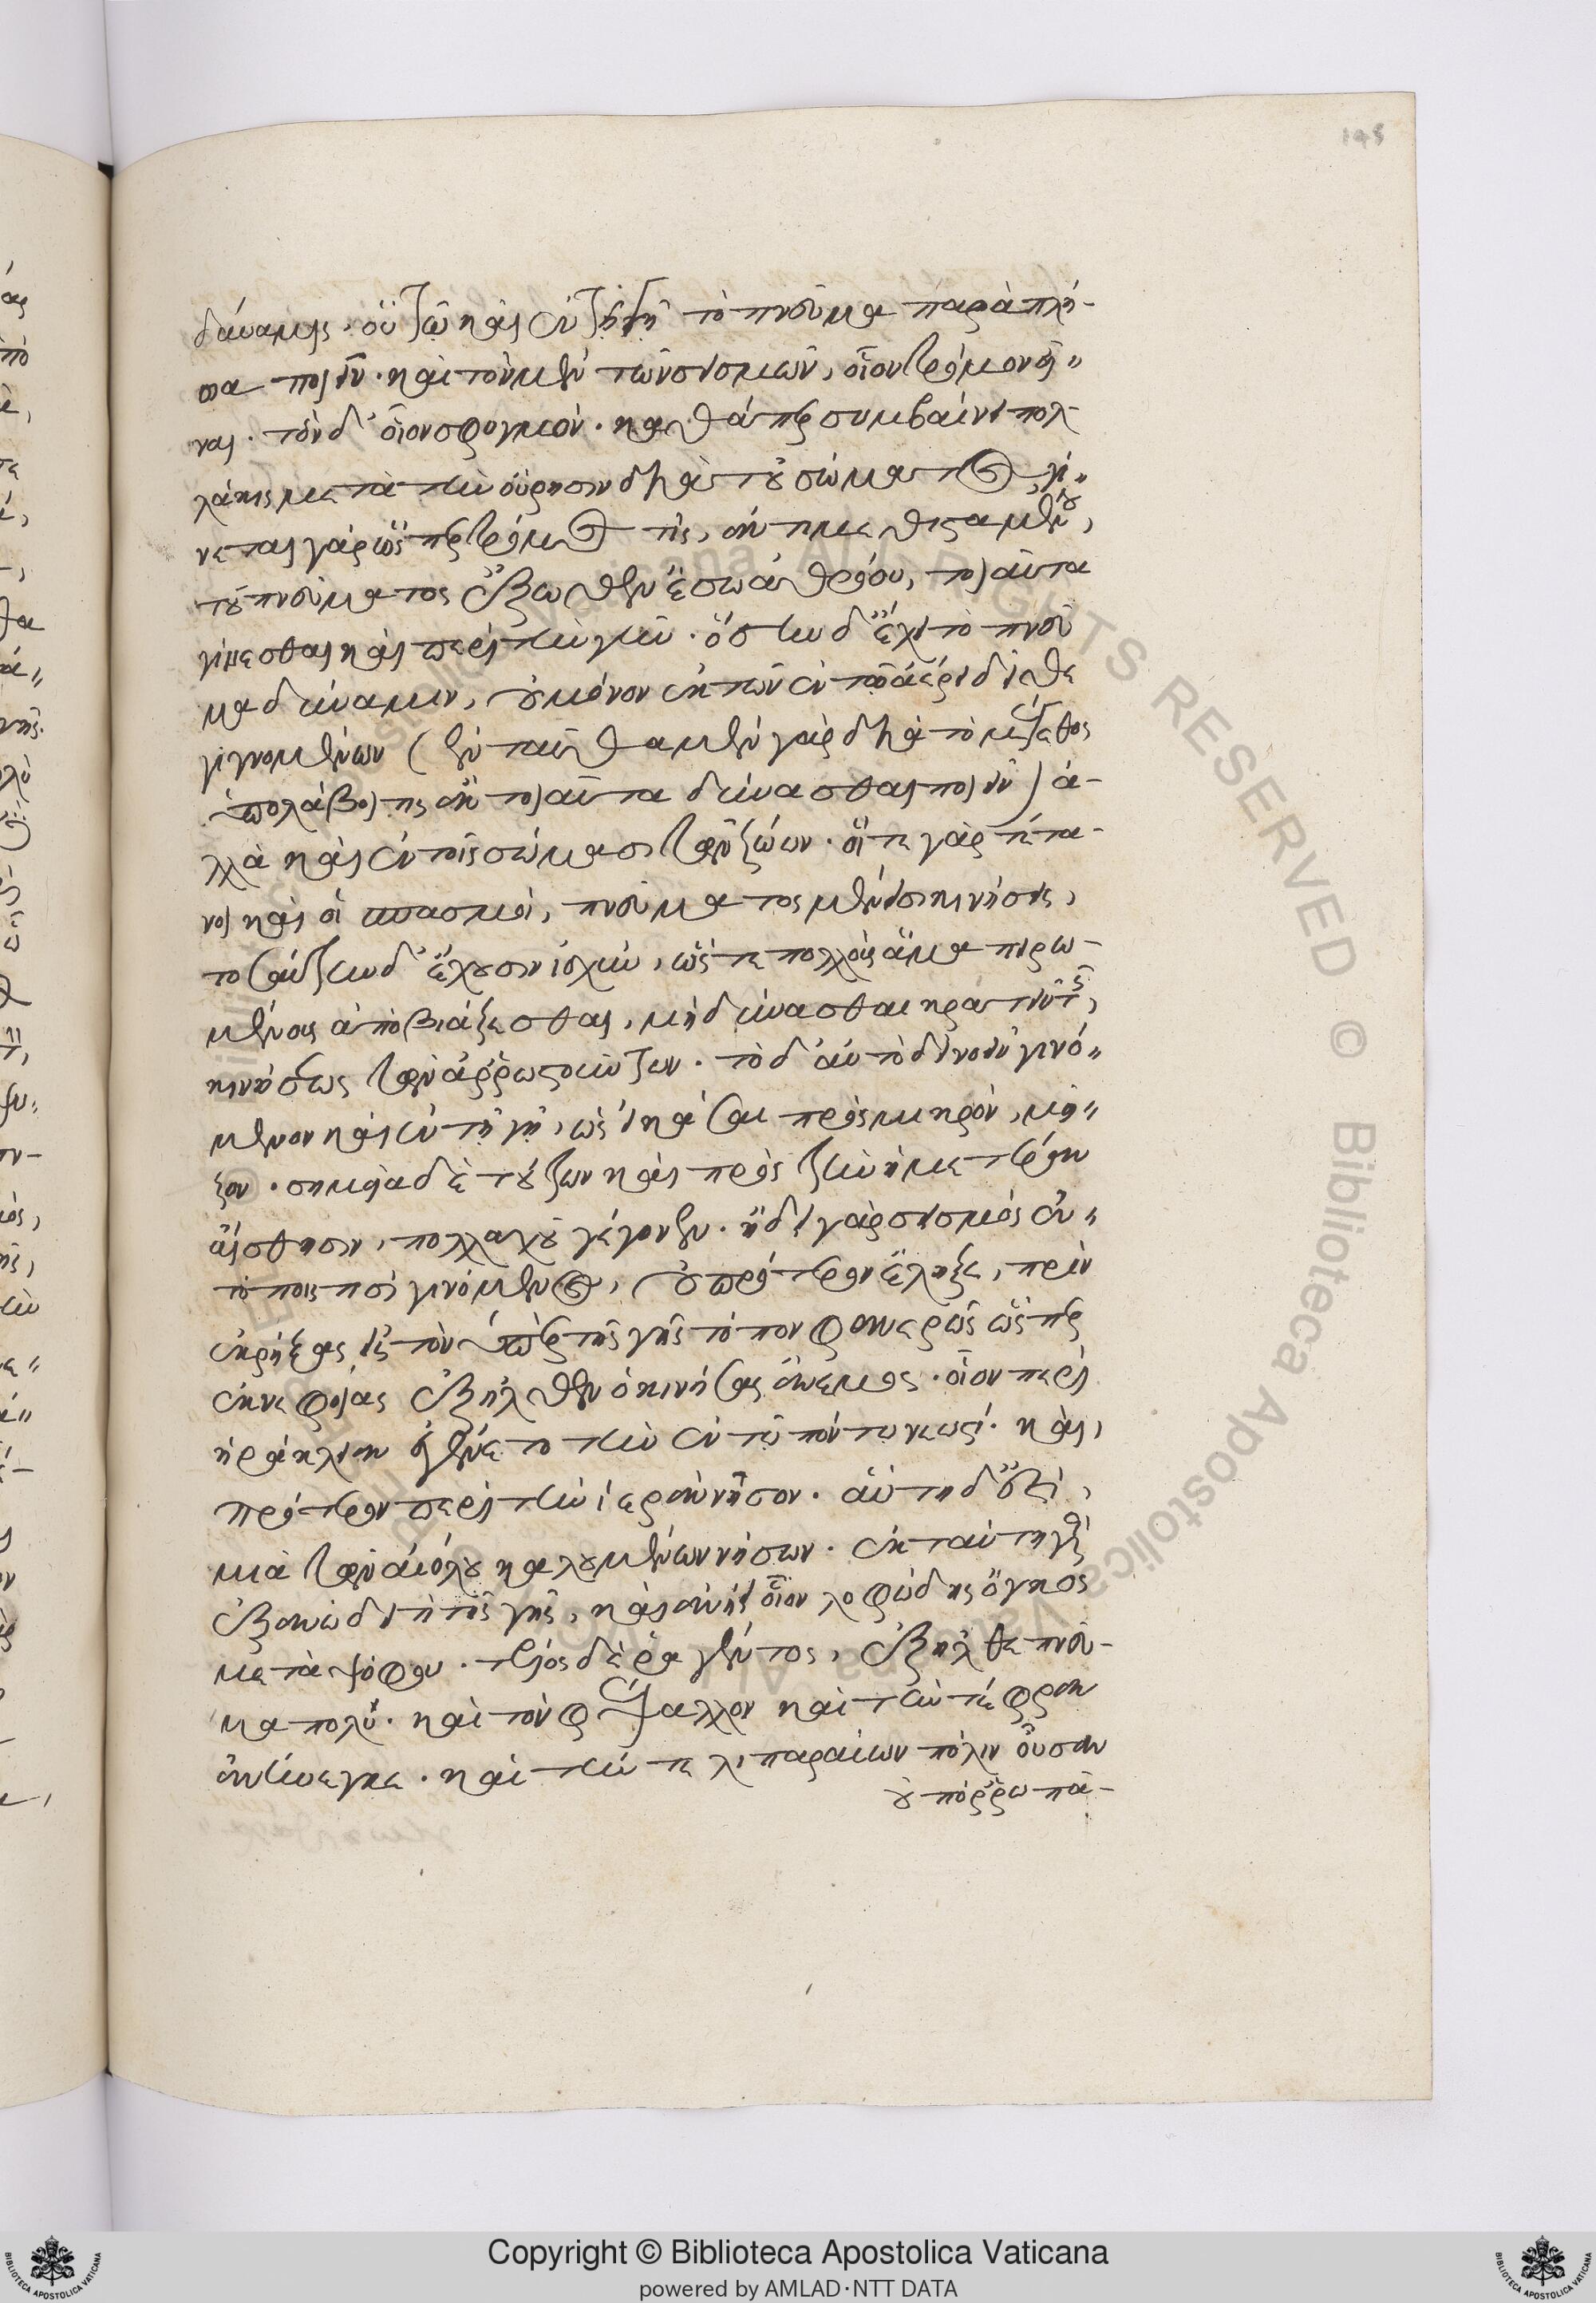 δύναμις. οὕτω καὶ ἐν τῇ γῇ τὸ πνεῦμα παραπλή-
σια ποιεῖν. καὶ τὸν μὲν τῶν σεισμῶν, οἷον τρόμον εἶ-
ναι. τὸν δ' οἷον σφυγμὸν. καθάπερ συμβαίνει πολ-
λάκις μετὰ τὴν οὔρησιν διὰ τοῦ σώματος, γί-
νεται γὰρ ὥσπερ τρόμος τὶς, ἀντιμεθισταμένου,
τοῦ πνεύματος ἔξωθεν ἔσω ἀθρόου, τοιαῦτα
γίνεσθαι καὶ περὶ τὴν γῆν. ὅσην δ' ἔχει τὸ πνεῦ
μα δύναμιν, οὐ μόνον ἐκ τῶν ἐν τῷ ἀέρι δεῖ θε
γιγνομένων (ἐνταῦθα μὲν γὰρ διὰ τὸ μέγεθος
ὑπολάβοι τις ἂν τοιαῦτα δύνασθαι ποιεῖν) ἀ-
λλὰ καὶ ἐν τοῖς σώμασι τῶν ζώων. οἵ τε γὰρ τέτα-
νοι καὶ οἱ σπασμοὶ, πνεύματος μέν εἰσι κινήσεις,
τοσαύτην δ' ἔχουσιν ἰσχὺν, ὥστε πολλοὺς ἅμα πειρω-
μένους ἀποβιάζεσθαι, μὴ δύνασθαι κρατεῖν τῆς,
κινήσεως τῶν ἀρρωστούντων. τὸ δ' αὐτὸ δεῖ νοεῖν γινό-
μενον καὶ ἐν τῇ γῇ, ὡς εἰκάσαι πρὸς μικρὸν, μεῖ-
ζον. σημεῖα δὲ τούτων καὶ πρὸς τὴν ἡμετέραν
αἴσθησιν, πολλαχοῦ γέγονεν. ἤδη γὰρ σεισμὸς ἐν
τόποις τισὶ γινόμενος, οὐ πρότερον ἔληξε, πρὶν
ἐκρήξας εἰς τὸν ὑπὲρ τῆς γῆς τόπον φανερῶς ὥσπερ
ἐκνεφίας ἐξῆλθεν ὁ κινήσας ἄνεμος. οἷον περὶ
ἡράκλειαν ἐγένετο τὴν ἐν τῷ πόντῳ νεωστί. καὶ,
πρότερον περὶ τὴν ἱερὰν νῆσον. αὕτη δ' ἐστὶ,
μία τῶν αἰόλου καλουμένων νήσων. ἐν ταύτῃ γὰρ
ἐξανῴδει τὶ τῆς γῆς, καὶ ἀνῄει οἷον λοφώδης ὄγκος
μετὰ ψόφου. τέλος δὲ ῥαγέντος, ἐξῆλθε πνεῦ-
μα πολὺ. καὶ τὸν φέψαλλον καὶ τὴν τέφραν
ἀνήνεγκε. καὶ τήν τε λιπαραίων πόλιν οὖσαν
οὐ πόρρω πᾶ-